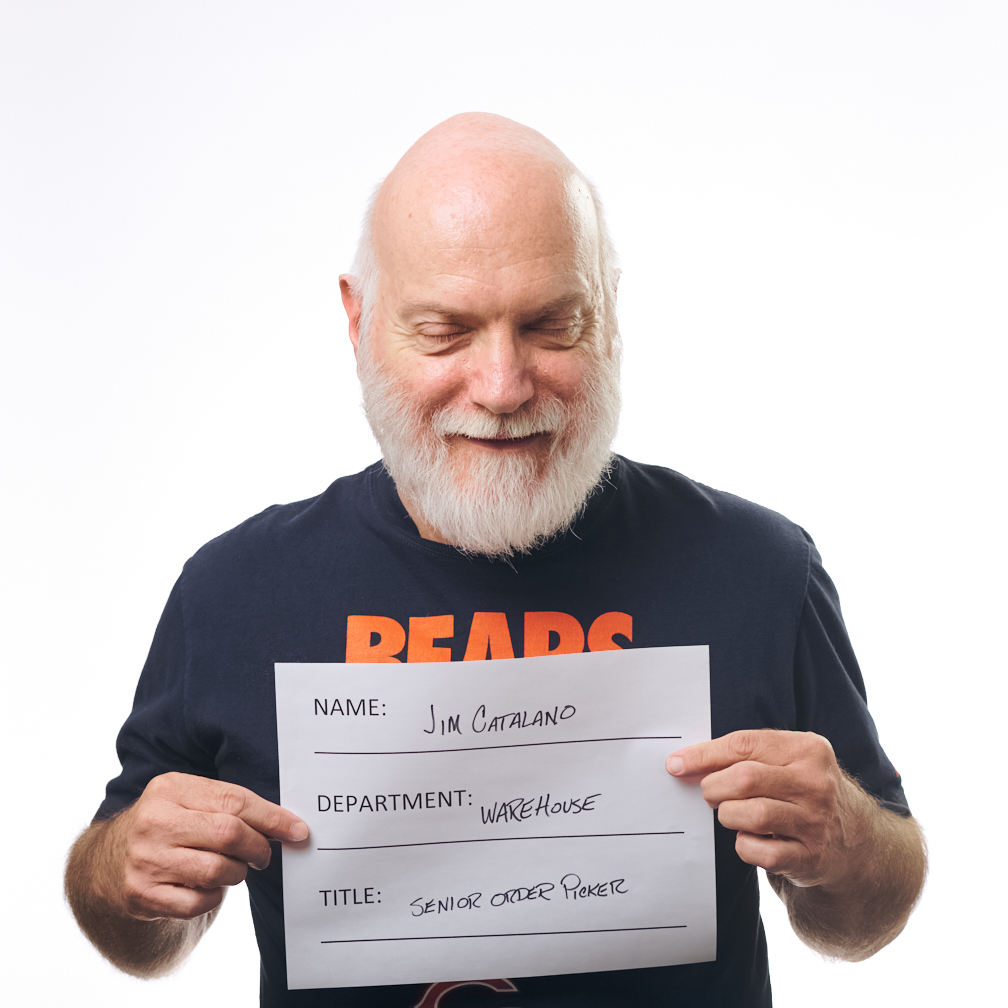 BEARS
NAME: JIM CATALANO
DEPARTMENT: WAREHOUSE
TITLE: SENIOR ORDER PICKER